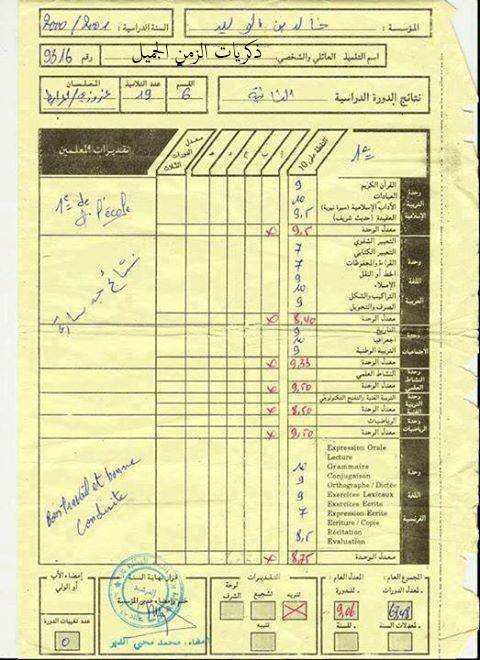 المؤسسة : خالد بن الوليد
السنة الدراسية : 2000 / 2001
اسم التلميذ العائلي والشخصي:
ذكريات الزمن الجميل
رقم 9316
نتائج الدورة الدراسية الثانية
القسم 6
عدد التلاميذ 19
المعلمان
1ère
النقطة على 10
أ
ب
ج
د
هـ
معدل الدورات الثلاث
تقديرات المعلمين
وحدة التربية الإسلامية
القرآن الكريم 9
العبادات 10
الآداب الإسلامية (سيرة نبوية) 9,5
العقيدة (حديث شريف)
معدل الوحدة 9,5 x
وحدة اللغة العربية
التعبير الشفوي 7
التعبير الكتابي
القراءة والمحفوظات 7
الخط أو النقل 9
الإملاء 10
التراكيب والشكل 9
الصرف والتحويل
معدل الوحدة 8,40 x
وحدة الاجتماعيات
التاريخ 9
الجغرافيا 10
التربية الوطنية 9
معدل الوحدة 9,33 x
وحدة النشاط العلمي
النشاط العلمي
معدل الوحدة 9,50 x
وحدة التربية الفنية
التربية الفنية والتفتح التكنولوجي
معدل الوحدة 8,50 x
وحدة الرياضيات
الرياضيات
معدل الوحدة 9,50 x
وحدة اللغة الفرنسية
Expression Orale
Lecture
Grammaire 10
Conjugaison 9
Orthographe / Dictée
Exercices Lexicaux 9
Exercices Ecrits
Expression Ecrite 7
Ecriture / Copie
Récitation 8,5
Evaluation
معدل الوحدة 8,75 x
1e de
l'école
نتائج جد سارة
Bon travail et bonne
conduite
المجموع العام :
لمعدل الدورات
لمعدلات السنة
المعدل العام :
للدورة
للسنة
9,06
التقديرات
تنويه
تشجيع
لوحة الشرف
تنبيه
قرار نهاية السنة
ختم وإمضاء مدير المؤسسة
إمضاء: محمد محيي الدين
إمضاء الأب أو الولي
عدد تغيبات الدورة
0